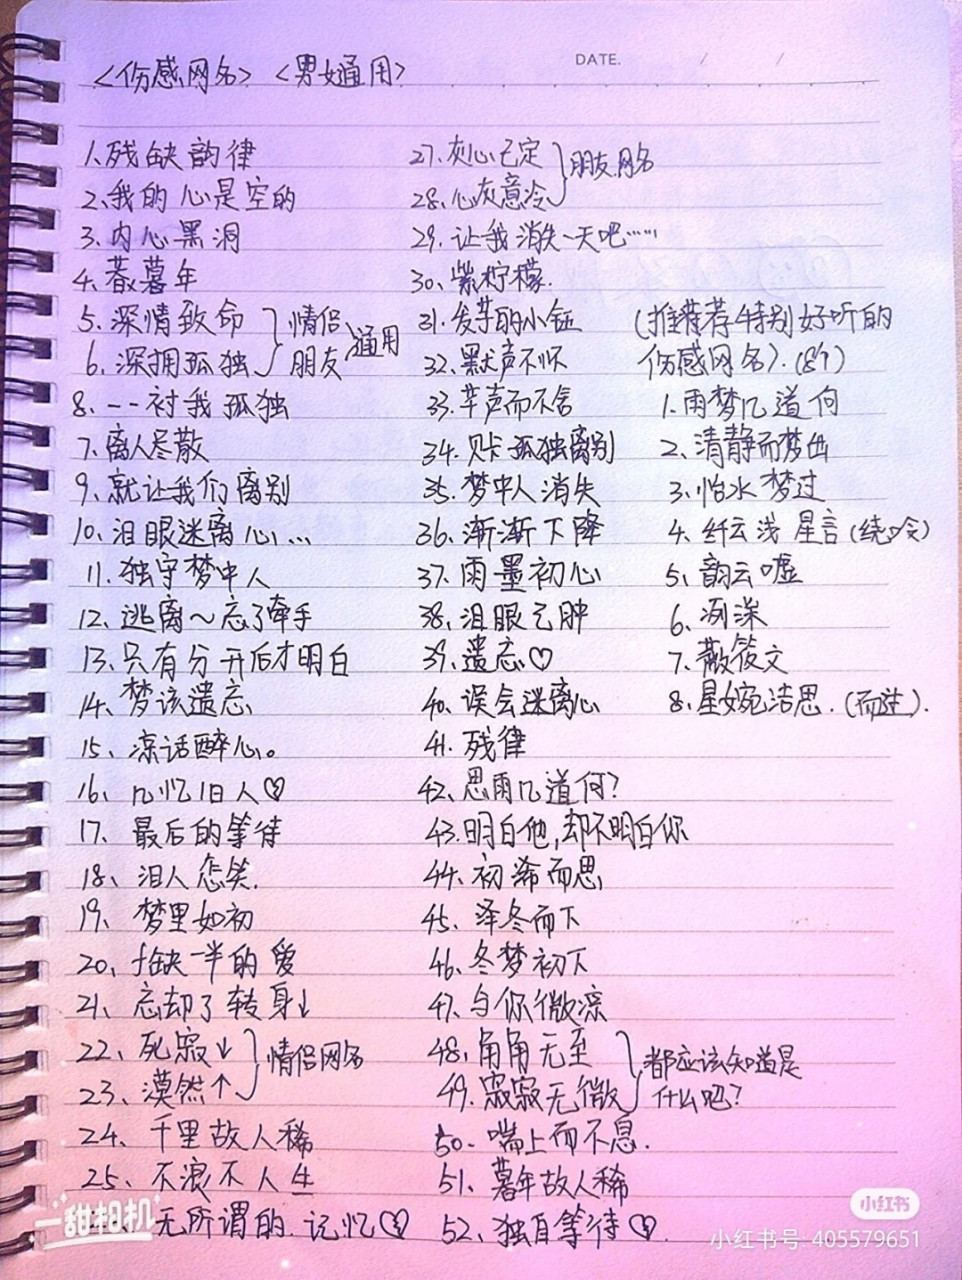 DATE. / /
<伤感网名> <男女通用>
1、残缺韵律
2、我的心是空的
3、内心黑洞
4、暮年
5、深情致命
6、深拥孤独
情侣
朋友
通用
8、一一衬我孤独
7、离人尽散
9、就让我们离别
10、泪眼迷离心...
11、独守梦中人
12、逃离～忘了牵手
13、只有分开后才明白
14、梦该遗忘
15、凉话醉心。
16、几忆旧人♡
17、最后的等待
18、泪人恋笑.
19、梦里如初
20、缺一半的爱
21、忘却了转身↓
22、死寂↓
23、漠然↑
情侣网名
24、千里故人稀
25、不浪不人生
无所谓的.记忆♡
27、灰心已定
28、心灰意冷
朋友网名
29、让我消失一天吧……
30、紫柠檬.
31、发芽的小
32、默声不
33、声而不言
34、孤独离别
35、梦中人消失
36、渐渐下降
37、雨墨初心
38、泪眼已肿
39、遗忘♡
40、误会迷离心
41、残律
42、思雨几道何？
43.明白他,却不明白你
44、初浠而思
45、泽冬而下
46、冬梦初下
47、与你微凉
48、角角无至
49、寂寂无微
都应该知道是
什么吧？
50、喘上而不息.
51、暮年故人稀
52、独自等待♡.
(推荐特别好听的
伤感网名).(8个)
1.雨梦几道何
2、清静而梦出
3、怡水梦过
4、纤云浅星言(绕口令)
5、韵云嘘
6、洌深
7、散筱文
8、星婉洁思.(而过).
一甜相机
小红书
小红书号: 405579651